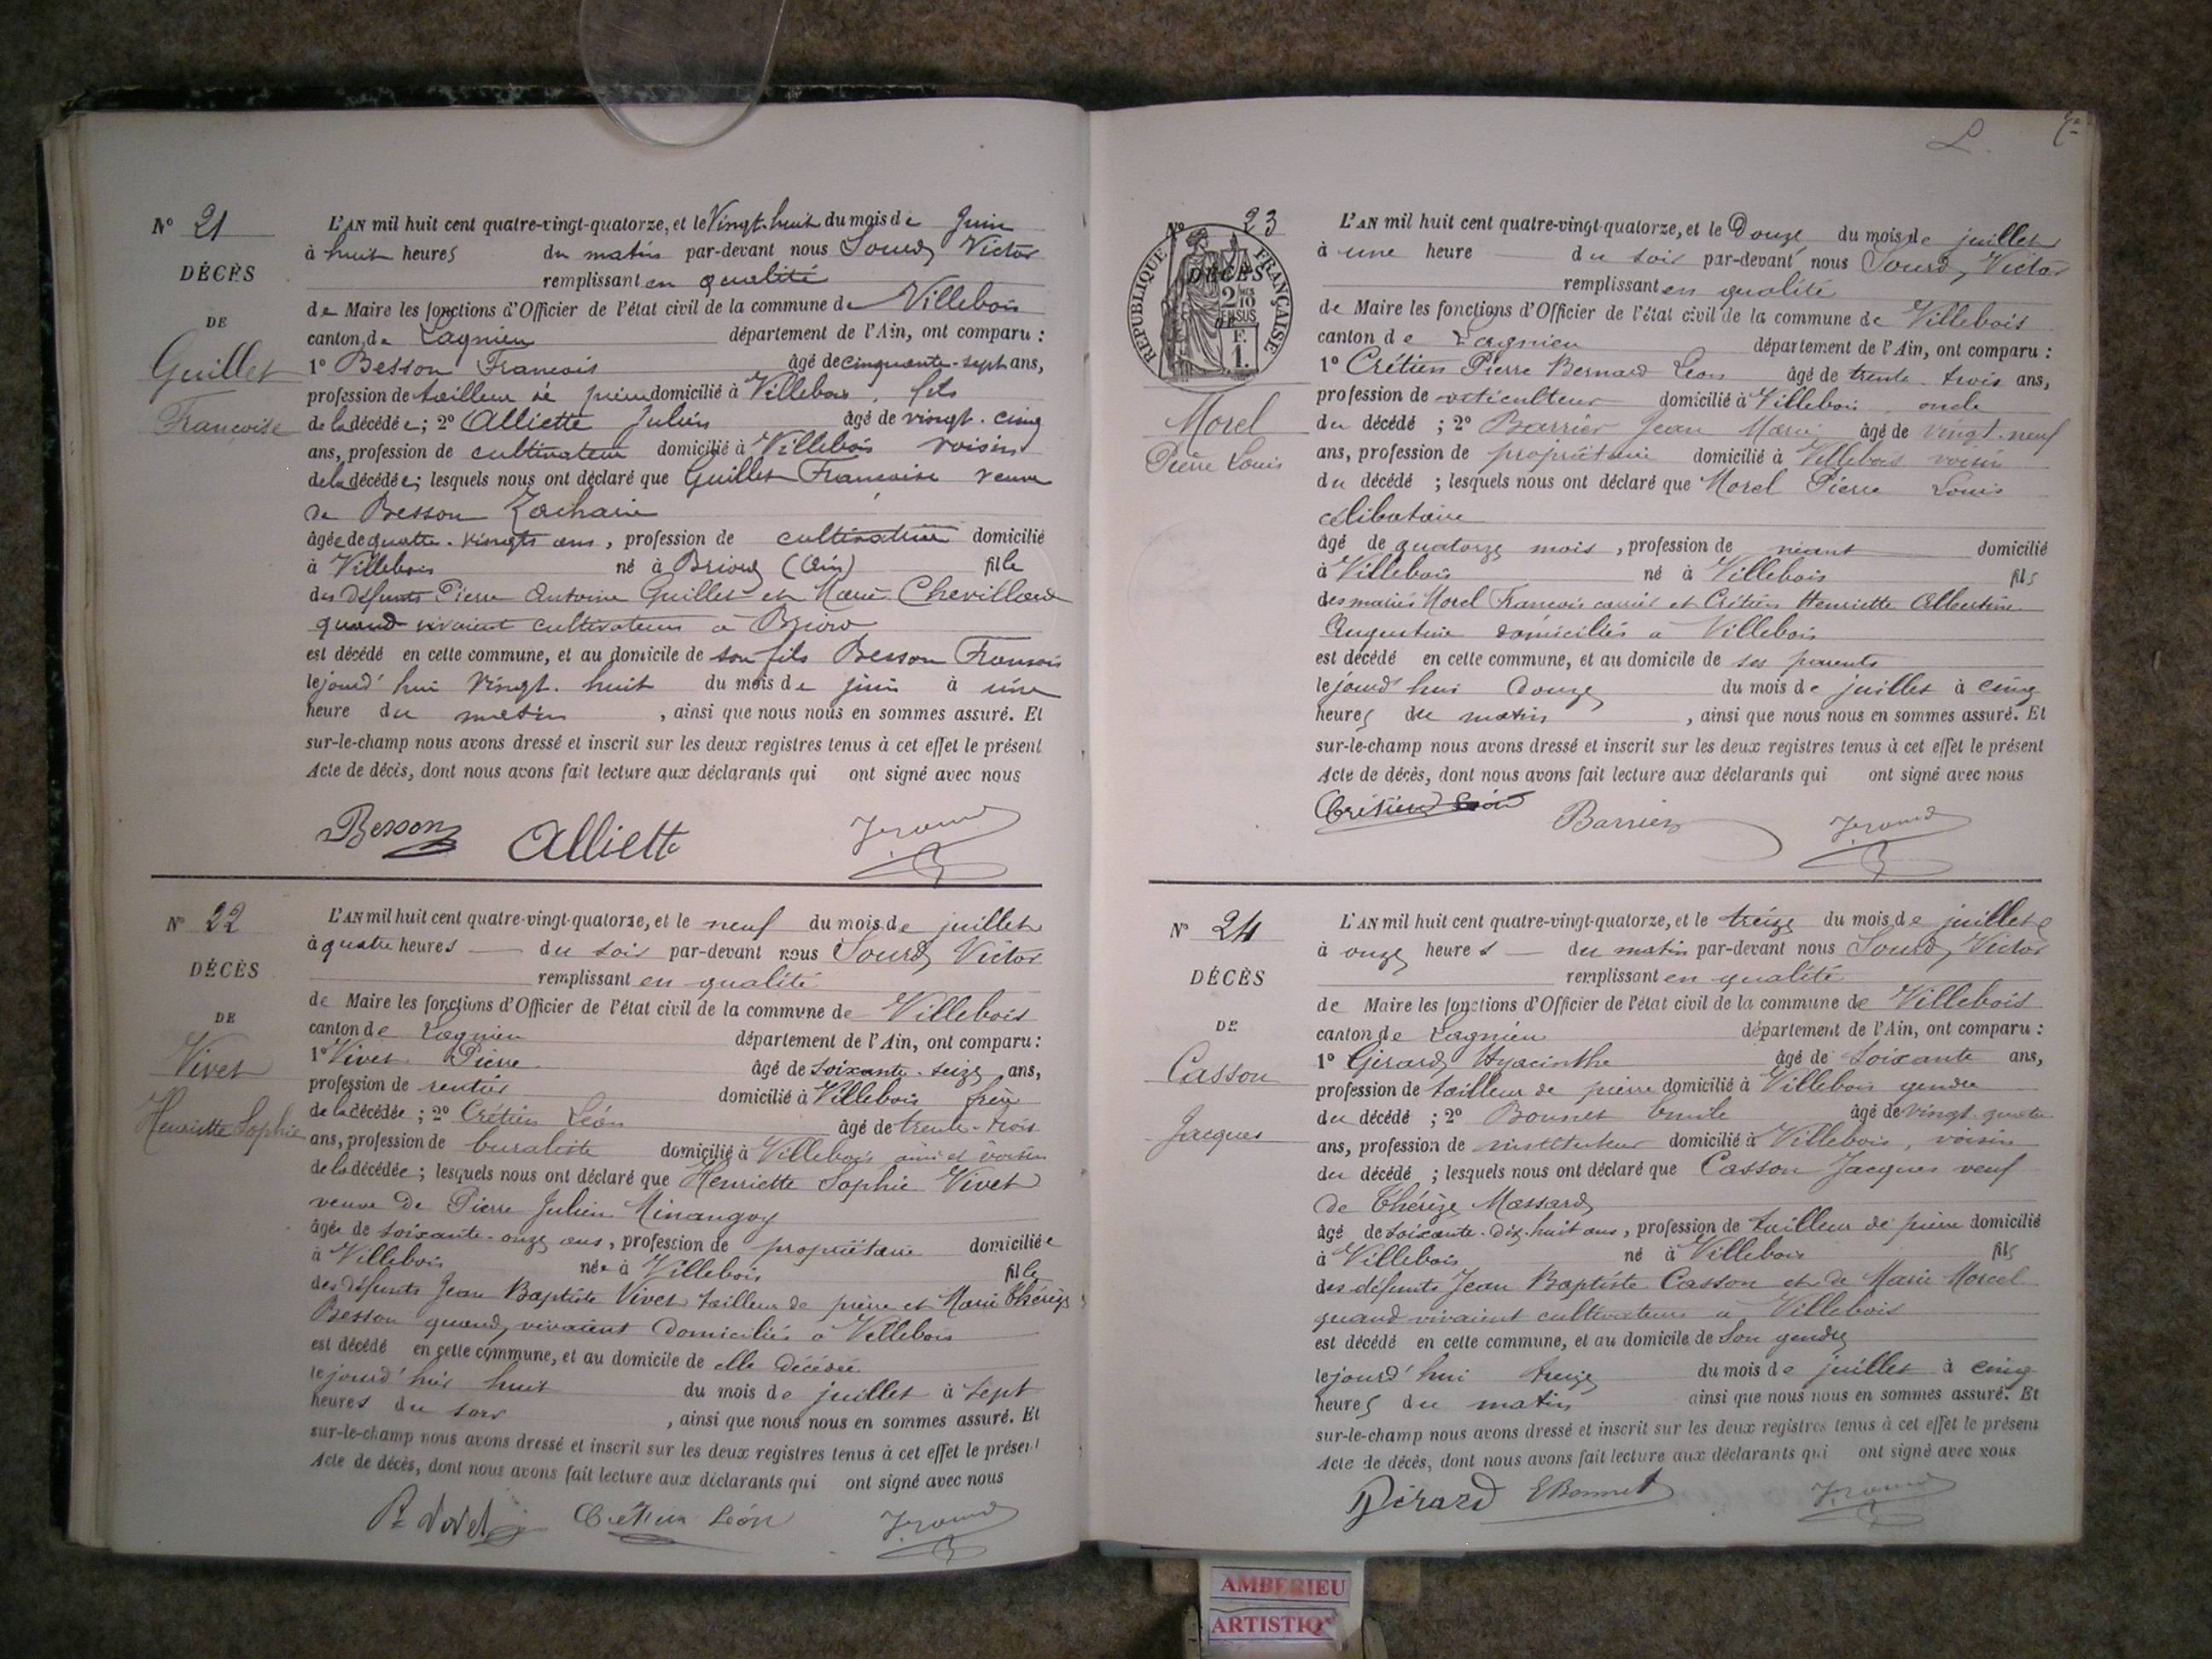 N° 21
DÉCÈS
DE
Guillet
Francoise
L'AN mil huit cent quatre-vingt-quatorze, et le Vingt-huit du mois de Juin
à huit heures du matin par-devant nous Sourd Victor
remplissant en qualité
de Maire les fonctions d'Officier de l'état civil de la commune de Villebois
canton de Lagnieu département de l'Ain, ont comparu :
1° Besson Francois âgé de cinquante-sept ans,
profession de tailleur de pierre domicilié à Villebois, fils
de la décédée ; 2° Alliette Julien âgé de vingt-cinq
ans, profession de cultivateur domicilié à Villebois voisin
de la décédée ; lesquels nous ont déclaré que Guillet Francoise veuve
de Besson Zacharie
âgée de quatre-vingts ans, profession de cultivatrice domicilié
à Villebois né à Briord (Ain) fille
des défunts Pierre Antoine Guillet et Marie Chevillard
quand vivaient cultivateurs à Briord
est décédé en cette commune, et au domicile de son fils Besson Francois
lejourd'hui vingt-huit du mois de juin à une
heure du matin , ainsi que nous nous en sommes assuré. Et
sur-le-champ nous avons dressé et inscrit sur les deux registres tenus à cet effet le présent
Acte de décès, dont nous avons fait lecture aux déclarants qui ont signé avec nous
Besson Alliette
N° 22
DÉCÈS
DE
Vivet
Henriette Sophie
L'AN mil huit cent quatre-vingt-quatorze, et le neuf du mois de juillet
à quatre heures du soir par-devant nous Sourd Victor
remplissant en qualité
de Maire les fonctions d'Officier de l'état civil de la commune de Villebois
canton de Lagnieu département de l'Ain, ont comparu :
1° Vivet Pierre âgé de soixante-seize ans,
profession de rentier domicilié à Villebois frère
de la décédée ; 2° Crétien Léon âgé de trente-trois
ans, profession de buraliste domicilié à Villebois ami et voisin
de la décédée ; lesquels nous ont déclaré que Henriette Sophie Vivet
veuve de Pierre Julien Minangoy
âgée de soixante-onze ans, profession de propriétaire domiciliée
à Villebois née à Villebois fille
des défunts Jean Baptiste Vivet tailleur de pierre et Marie Thérèze
Besson quand vivaient domiciliés à Villebois
est décédé en cette commune, et au domicile de elle décédée
lejourd'hui huit du mois de juillet à sept
heures du soir , ainsi que nous nous en sommes assuré. Et
sur-le-champ nous avons dressé et inscrit sur les deux registres tenus à cet effet le présent
Acte de décès, dont nous avons fait lecture aux déclarants qui ont signé avec nous
P. Vivet Crétien Léon
N° 23
RÉPUBLIQUE FRANÇAISE
DÉCÈS
2 MES
10
EN SUS
DE
F.
1.
Morel
Pierre Louis
L'AN mil huit cent quatre-vingt-quatorze, et le Douze du mois de juillet
à une heure du soir par-devant nous Sourd Victor
remplissant en qualité
de Maire les fonctions d'Officier de l'état civil de la commune de Villebois
canton de Lagnieu département de l'Ain, ont comparu :
1° Crétien Pierre Bernard Leon âgé de trente-trois ans,
profession de viticulteur domicilié à Villebois oncle
du décédé ; 2° Barrier Jean Marie âgé de vingt-neuf
ans, profession de propriétaire domicilié à Villebois voisin
du décédé ; lesquels nous ont déclaré que Morel Pierre Louis
célibataire
âgé de quatorze mois, profession de néant domicilié
à Villebois né à Villebois fils
des mariés Morel Francois carrier et Crétien Henriette Albertine
Augustine domiciliés à Villebois
est décédé en cette commune, et au domicile de ses parents
lejourd'hui douze du mois de juillet à cinq
heures du matin , ainsi que nous nous en sommes assuré. Et
sur-le-champ nous avons dressé et inscrit sur les deux registres tenus à cet effet le présent
Acte de décès, dont nous avons fait lecture aux déclarants qui ont signé avec nous
Crétien Léon Barrier
N° 24
DÉCÈS
DE
Casson
Jacques
L'AN mil huit cent quatre-vingt-quatorze, et le treize du mois de juillet
à onze heures du matin par-devant nous Sourd Victor
remplissant en qualité
de Maire les fonctions d'Officier de l'état civil de la commune de Villebois
canton de Lagnieu département de l'Ain, ont comparu :
1° Girard Hyacinthe âgé de soixante ans,
profession de tailleur de pierre domicilié à Villebois gendre
du décédé ; 2° Bonnet Emile âgé de vingt-quatre
ans, profession de instituteur domicilié à Villebois, voisin
du décédé ; lesquels nous ont déclaré que Casson Jacques veuf
de Thérèze Massard
âgé de soixante-dix-huit ans, profession de tailleur de pierre domicilié
à Villebois né à Villebois fils
des défunts Jean Baptiste Casson et de Marie Morcel
quand vivaient cultivateurs à Villebois
est décédé en cette commune, et au domicile de son gendre
lejourd'hui treize du mois de juillet à cinq
heures du matin ainsi que nous nous en sommes assuré. Et
sur-le-champ nous avons dressé et inscrit sur les deux registres tenus à cet effet le présent
Acte de décès, dont nous avons fait lecture aux déclarants qui ont signé avec nous
Girard EBonnet
AMBERIEU
ARTISTIQ